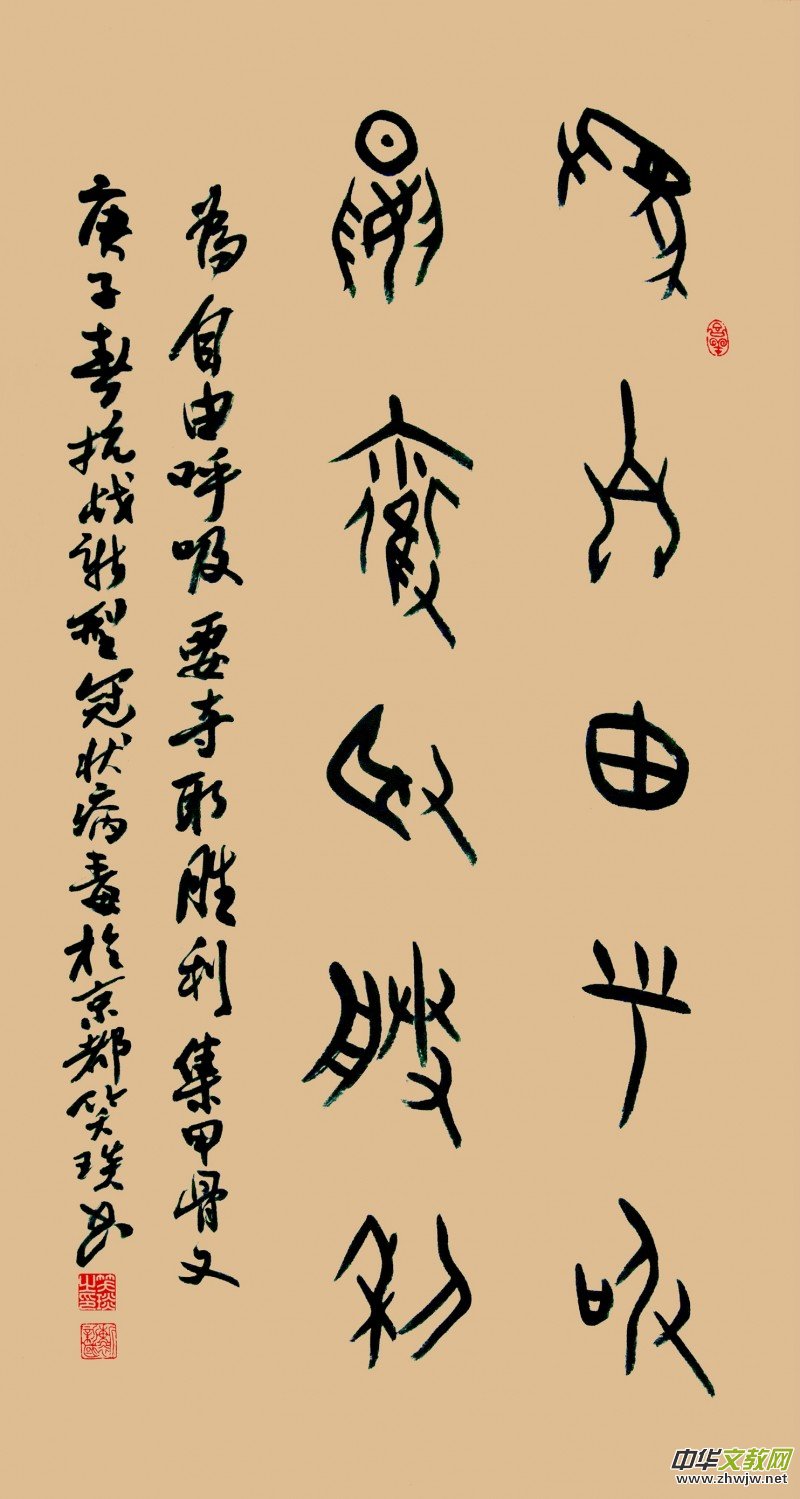 為自由呼吸
要夺取胜利
為自由呼吸要夺取胜利集甲骨文
庚子春抗战新型冠状病毒於京都笑琰书
中华文教网
www.zhwjw.net